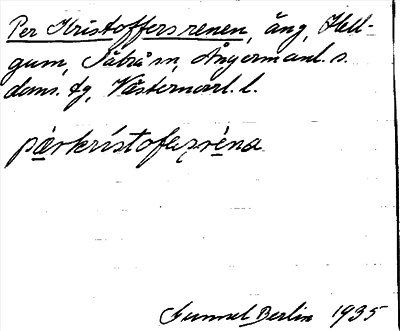 Per Kristoffersrenen, äng, Hell-
gum, Säbrå sn, Ångermanl. s.
doms. fg, Västernorrl. l.
pærkristofesréna
Gunnel Berlin 1935